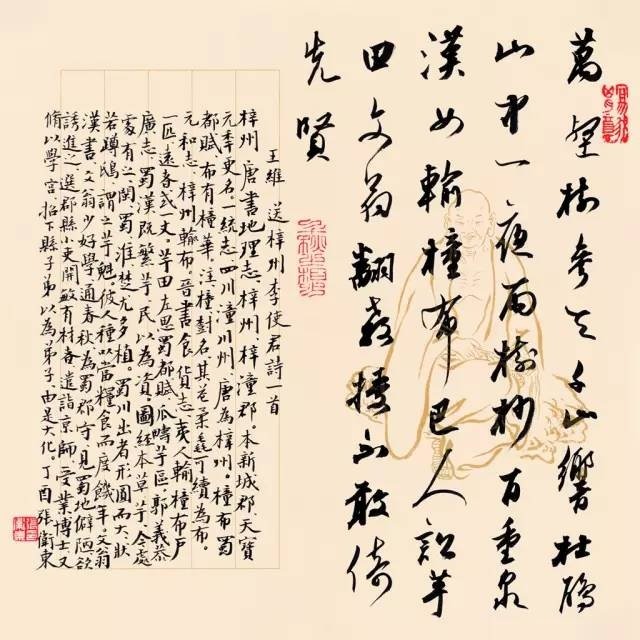 萬壑樹參天千山響杜鵑
山中一夜雨樹杪百重泉
漢女輸橦布巴人訟芋
田文翁翻教授不敢倚
先賢
王維 送梓州李使君詩一首
梓州唐書地理志、梓州梓潼郡。本新城郡、天寶
元季更名一統志四川潼川州、唐為梓州。橦布蜀
都賦、布有橦華、注橦樹名其花柔毳可績為布。
元和志、梓州輸布。晉書食貨志、夷人輸橦布戶
一匹遠者或一丈。芋田左思蜀都賦瓜疇芋區郭義恭
廣志、蜀漢既繁芋、民以為資。圖經本草、芋今處
處有之、閩蜀淮楚尤多植。蜀川出者形圓而大、狀
若蹲鴟謂之芋魁彼人種以當糧食而度饑年。文翁
漢書文翁少好學通春秋為蜀郡守、見蜀地僻陋欲
誘進之選郡縣小吏開敏有材者遣詣京師、受業博士又
脩以學官招下縣子弟以為弟子、由是大化。丁酉張衛東